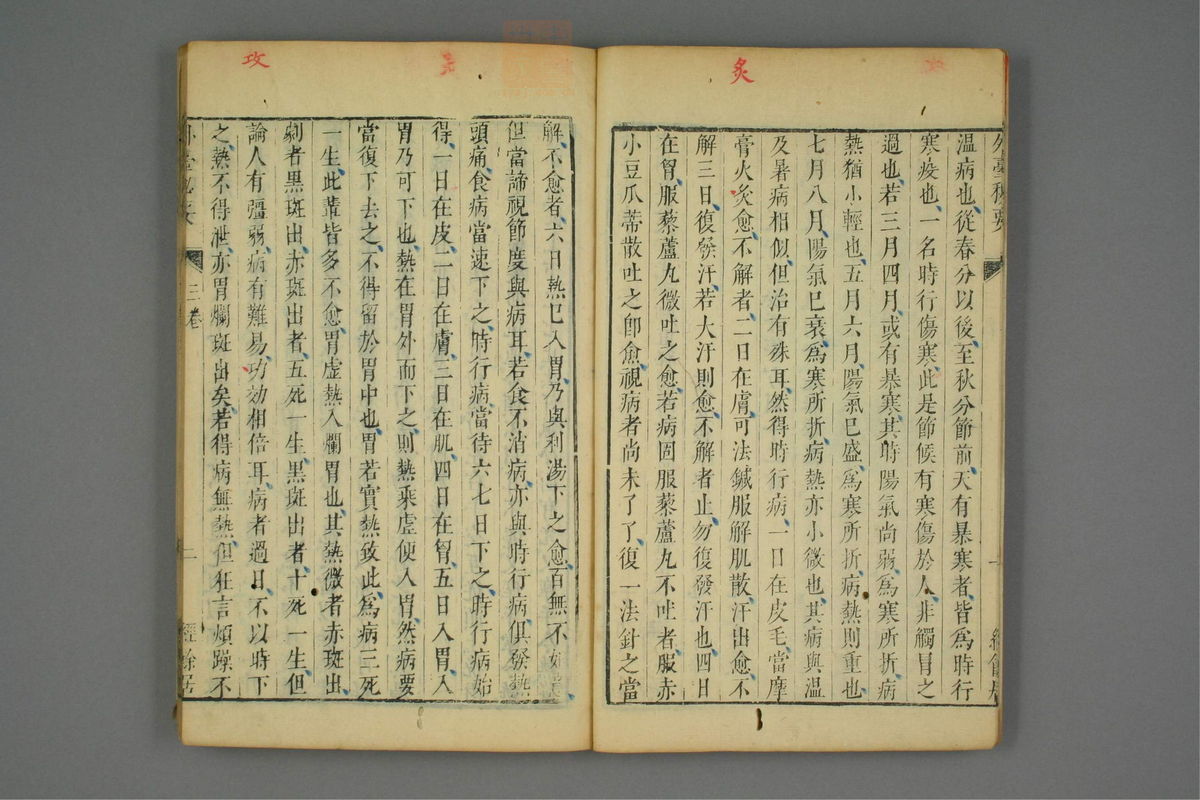 炙
外臺秘要
溫病也從春分以後至秋分節前天有暴寒者皆為時行
寒疫也一名時行傷寒此是節候有寒傷於人非觸冒之
過也若三月四月或有暴寒其時陽氣尚弱為寒所折病
熱猶小輕也五月六月陽氣已盛為寒所折病熱則重也
七月八月陽氣已衰為寒所折病熱亦小微也其病與溫
及暑病相似但治有殊耳然得時行病一日在皮毛當摩
膏火灸愈不解者二日在膚可法鍼服解肌散汗出愈不
解三日復發汗若大汗則愈不解者止勿復發汗也四日
在胷服藜蘆丸微吐之愈若病固服藜蘆丸不吐者服赤
小豆瓜蒂散吐之即愈視病者尚未了了復一法針之當
攻
解不愈者六日熱已入胃乃與利湯下之愈百無不如
但當諦視節度與病耳若食不消病亦與時行病俱發熱
頭痛食病當速下之時行病當待六七日下之時行病始
得一日在皮二日在膚三日在肌四日在胷五日入胃入
胃乃可下也熱在胃外而下之則熱乘虛便入胃然病要
當復下去之不得留於胃中也胃若實熱致此為病三死
一生此輩皆多不愈胃虛熱入爛胃也其熱微者赤斑出
剝者黑斑出赤斑出者五死一生黑斑出者十死一生但
論人有彊弱病有難易功效相倍耳病者過日不以時下
之熱不得泄亦胃爛斑出矣若得病無熱但狂言煩躁不
外臺秘要 三卷 二 經餘居